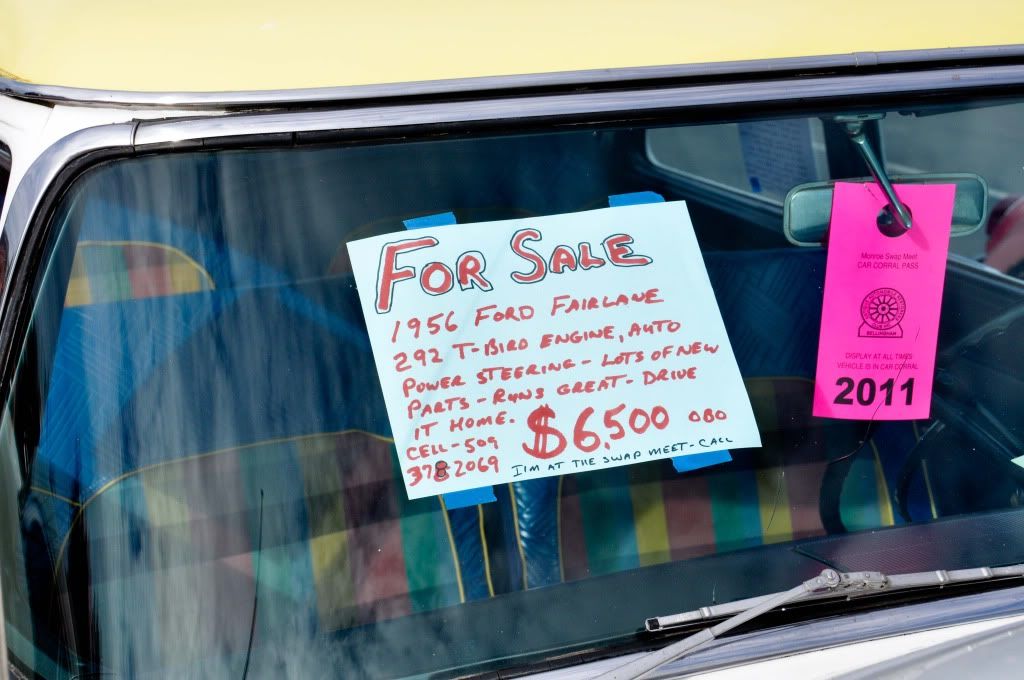 FOR SALE
1956 FORD FAIRLANE
292 T-BIRD ENGINE, AUTO
POWER STEERING - LOTS OF NEW
PARTS - RUNS GREAT - DRIVE
IT HOME. $6,500 OBO
CELL - 509
378 2069 I'M AT THE SWAP MEET - CALL
Monroe Swap Meet
CAR CORRAL PASS
BELLINGHAM
DISPLAY AT ALL TIMES
VEHICLE IS IN CAR CORRAL
2011